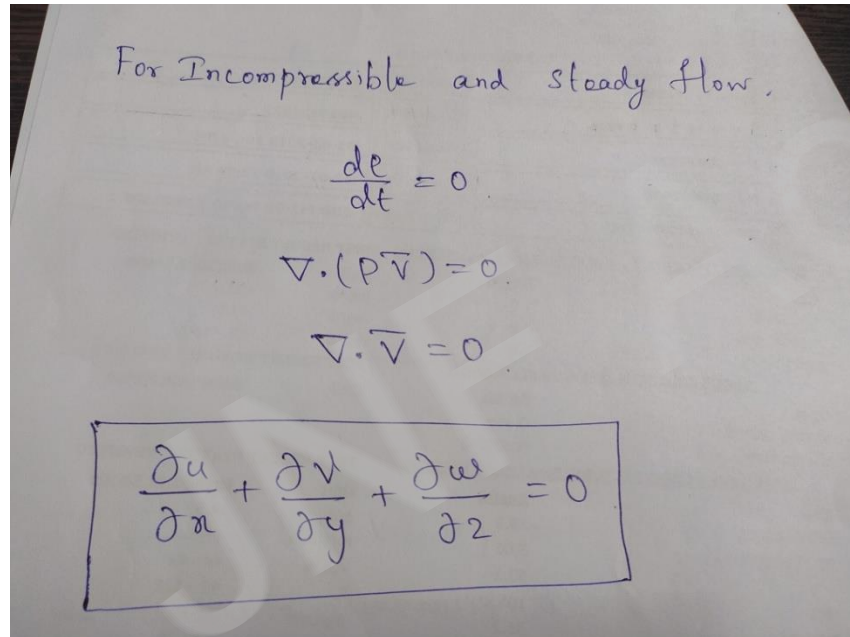 For Incompressible and steady flow.
de/dt = 0
∇.(P V̅) = 0.
∇. V̅ = 0
∂u/∂x + ∂v/∂y + ∂w/∂z = 0
JNF AC